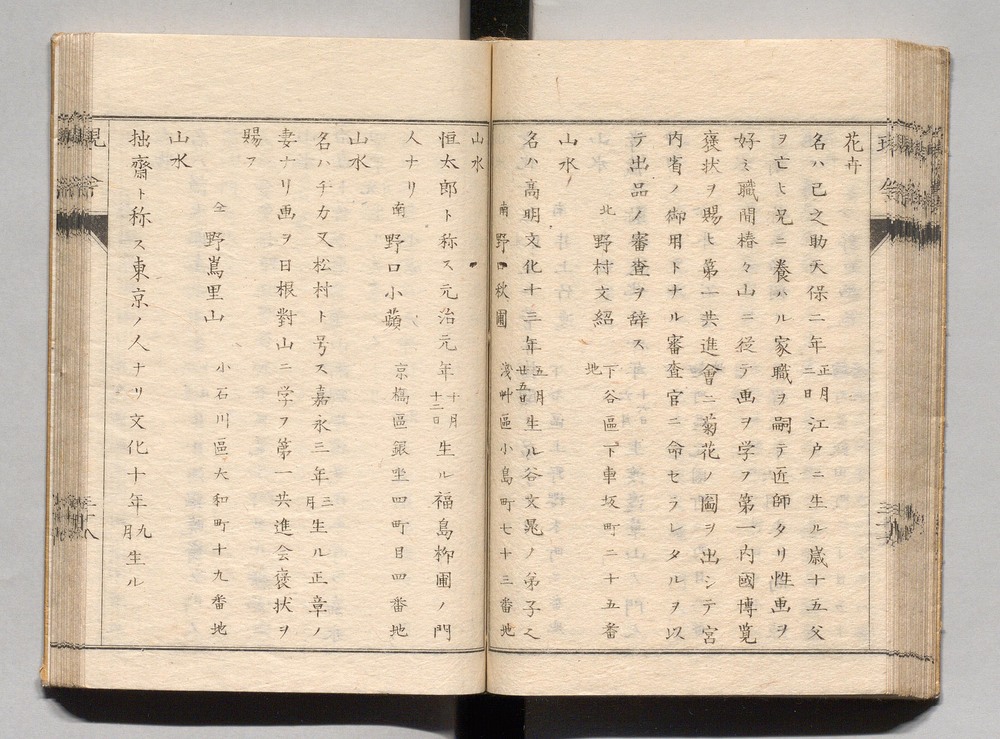 花卉
名ハ己之助天保二年正月二日江户ニ生ル歳十五父
ヲ亡ヒ兄ニ養ハル家職ヲ嗣テ近師タリ性画ヲ
好ミ職間椿々山ニ従テ画ヲ学フ第一内國博覧
褒状ヲ賜ヒ第一共進會ニ菊花ノ圖ヲ出シテ宮
内省ノ御用トナル審査官ニ命セラレタルヲ以
テ出品ノ審査ヲ辞ス
北 野村文紹 下谷區下車坂町二十五番地
山水
名ハ高明文化十三年五月廿五日生ル谷文晁ノ弟子ナリ
南 野口秋圃 淺艸區小島町七十三番地
山水
恒太郎ト称ス元治元年十月十二日生ル福島柳圃ノ門
人ナリ
南 野口小蘋 京橋區銀坐四町目四番地
山水
名ハチカ又松村ト号ス嘉永三年三月生ル正章ノ
妻ナリ画ヲ日根對山ニ学フ第一共進会褒状ヲ
賜フ
仝 野嶌里山 小石川區大和町十九番地
山水
拙齋ト称ス東京ノ人ナリ文化十年九月生ル